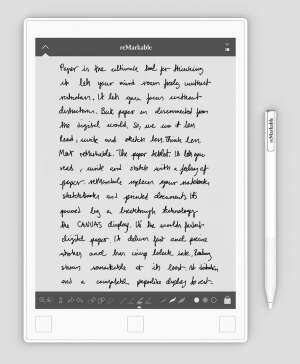 reMarkable
Paper is the ultimate tool for thinking
it lets your mind roam freely without
notifications. It lets you focus without
distractions. But paper is disconnected from
the digital world. So, we use it less
Read, write and sketch less. Think less.
Meet reMarkable. The paper tablet. It lets you
read, write and sketch with a feeling of
paper. reMarkable replaces your notebooks,
sketchbooks and printed documents. It's
powered by a breakthrough technology
the CANVAS display. It's the world's first
digital paper. It delivers fast and precise
strokes, and
shows remarkable at its best. No
and a completely paperlike display to
reMarkable